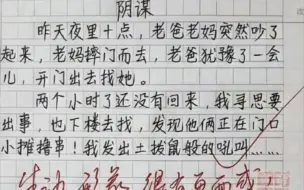 阴谋
昨天夜里十点，老爸老妈突然吵了
起来，老妈摔门而去，老爸犹豫了一会
儿，开门出去找她。
两个小时了还没有回来，我寻思要
出事，也下楼去找，发现他俩正在门口
小摊撸串！我发出土拔鼠般的吼叫……
生动